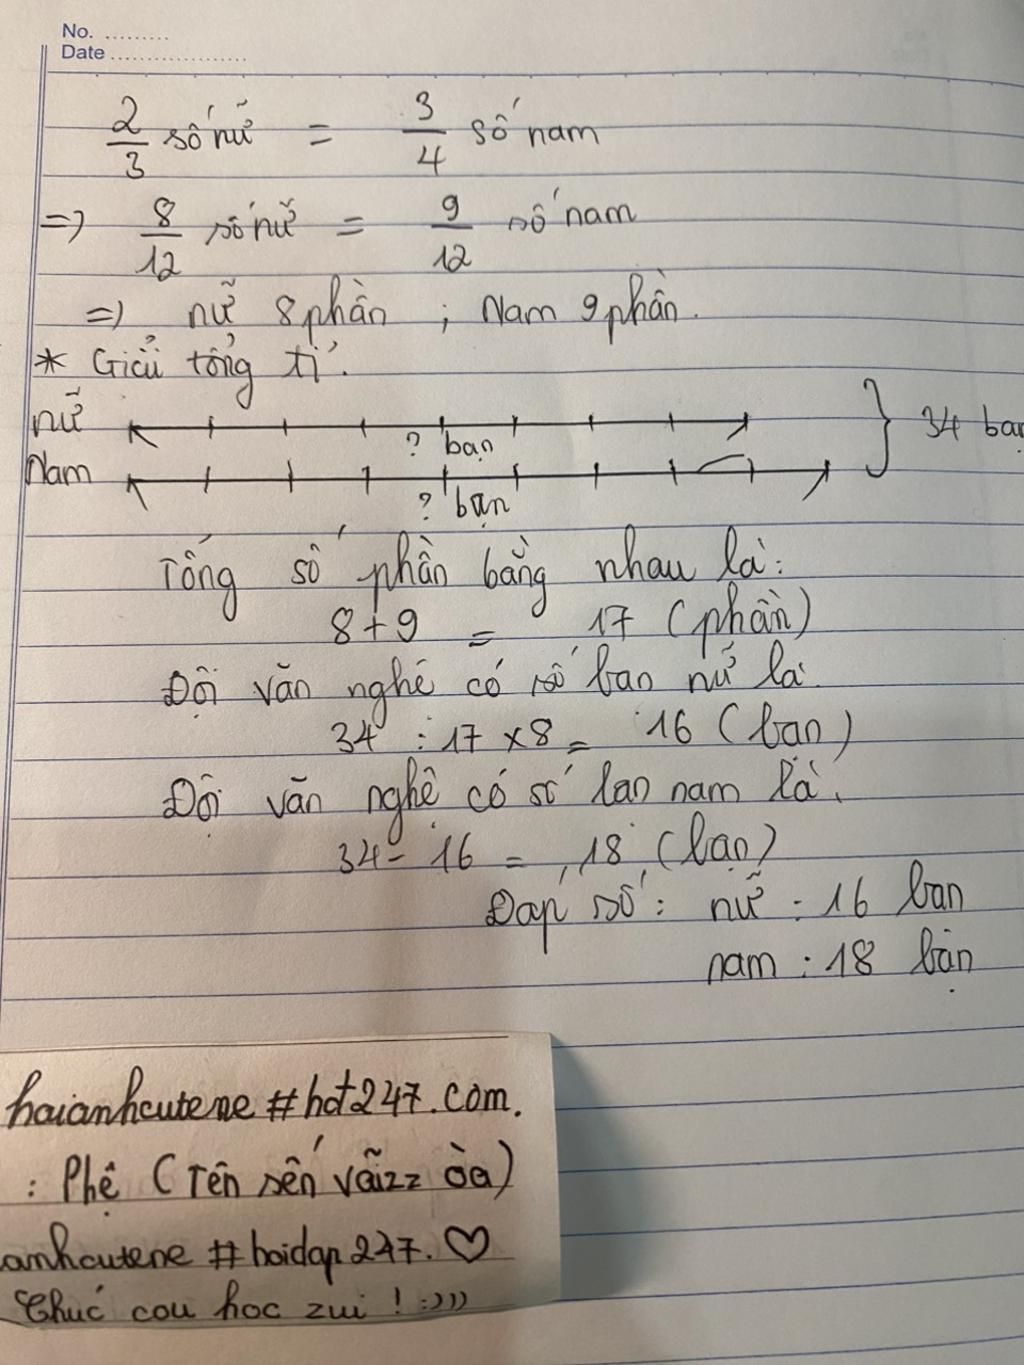 No. .........
Date ...................
2/3 số nữ = 3/4 số nam
=> 8/12 số nữ = 9/12 số nam
=> nữ 8 phần ; Nam 9 phần.
* Giải tổng tỉ.
nữ ? bạn } 34 bạn
Nam ? bạn
Tổng số phần bằng nhau là:
8+9 = 17 (phần)
Đội văn nghệ có số bạn nữ là
34 : 17 x 8 = 16 (bạn)
Đội văn nghệ có số bạn nam là.
34 - 16 = 18 (bạn)
Đáp số : nữ : 16 bạn
nam : 18 bạn
haianhcutene #hot247.com.
: Phệ (Tên sến vãizz òa)
anhcutene #hoidap247. ♡
Chúc cou hoc zui ! :)))